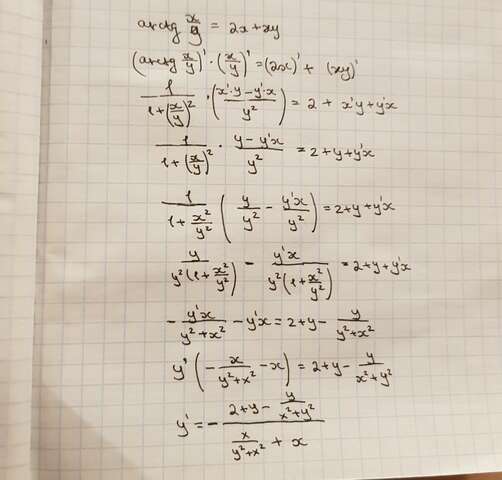 arctg x/y = 2x + xy
(arctg x/y)' · (x/y)' = (2x)' + (xy)'
1/(1+(x/y)²) · ((x'·y - y'·x)/y²) = 2 + x'y + y'x
1/(1+(x/y)²) · (y - y'x)/y² = 2 + y + y'x
1/(1+x²/y²) (y/y² - y'x/y²) = 2 + y + y'x
y/(y²(1+x²/y²)) - y'x/(y²(1+x²/y²)) = 2 + y + y'x
- y'x/(y²+x²) - y'x = 2 + y - y/(y²+x²)
y' (- x/(y²+x²) - x) = 2 + y - y/(x²+y²)
y' = - (2 + y - y/(x²+y²))/(x/(y²+x²) + x)